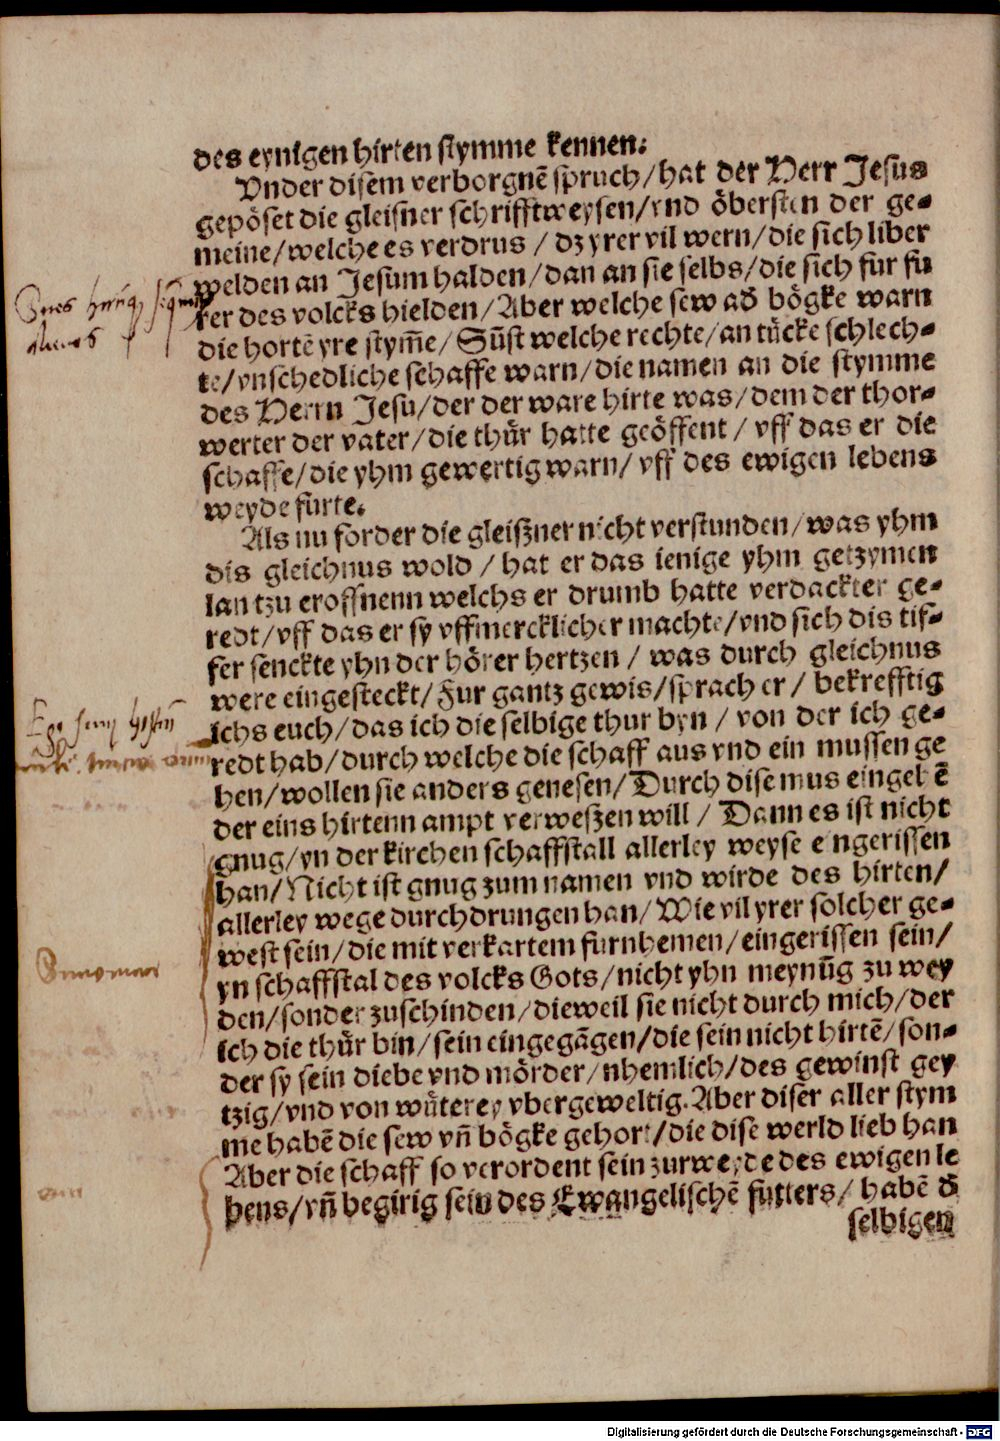 des eynigen hirten stymme kennen.
Vnder disem verborgnē spruch/hat der Herr Jesus
gepöset die gleisner schrifftweysen/vnd öbersten der ge-
meine/welche es verdrus / dz yrer vil wern/die sich liber
welden an Jesum halden/dan an sie selbs/die sich fur fu
rer des volcks hielden/Aber welche sew ad bögke warn
die hortē yre stym̄e/Sūst welche rechte/an tücke schlech-
te/vnschedliche schaffe warn/die namen an die stymme
des Herrn Jesu/der der ware hirte was/dem der thor-
werter der vater/die thür hatte geöffent / vff das er die
schaffe/die yhm gewertig warn/vff des ewigen lebens
weyde fürte.
Als nu forder die gleißner nicht verstunden/was yhm
dis gleichnus wold / hat er das ienige yhm getzymen
lan tzu eroffnenn welchs er drumb hatte verdackter ge-
redt/vff das er sy vffmercklicher machte/vnd sich dis tif-
fer senckte yhn der hörer hertzen / was durch gleichnus
were eingesteckt/Fur gantz gewis/sprach er / bekrefftig
ichs euch/das ich die selbige thur byn / von der ich ge-
redt hab/durch welche die schaff aus vnd ein mussen ge
hen/wollen sie anders genesen/Durch dise mus eingehē
der eins hirtenn ampt verweßen will / Dann es ist nicht
gnug/yn der kirchen schaffstall allerley weyse eingerissen
han/Nicht ist gnug zum namen vnd wirde des hirten/
allerley wege durchdrungen han/Wie vil yrer solcher ge-
west sein/die mit verkartem furnhemen/eingerissen sein/
yn schaffstal des volcks Gots/nicht yhn meynūg zu wey
den/sonder zuschinden/dieweil sie nicht durch mich/der
ich die thür bin/sein eingegāgen/die sein nicht hirtē/son-
der sy sein diebe vnd mörder/nhemlich/des gewinst gey
tzig/vnd von wüterey vbergeweltig.Aber diser aller stym
me habē die sew vn̄ bögke gehort/die dise werld lieb han
Aber die schaff so verordent sein zur weyde des ewigen le
bens/vn̄ begirig sein des Ewangelischē futters/habē d̄
selbigen
Digitalisierung gefördert durch die Deutsche Forschungsgemeinschaft - DFG